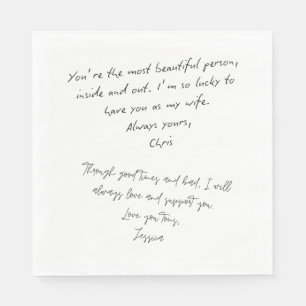 You're the most beautiful person,
inside and out. I'm so lucky to
have you as my wife.
Always yours,
Chris
Through good times and bad, I will
always love and support you.
Love you tons,
Jessica